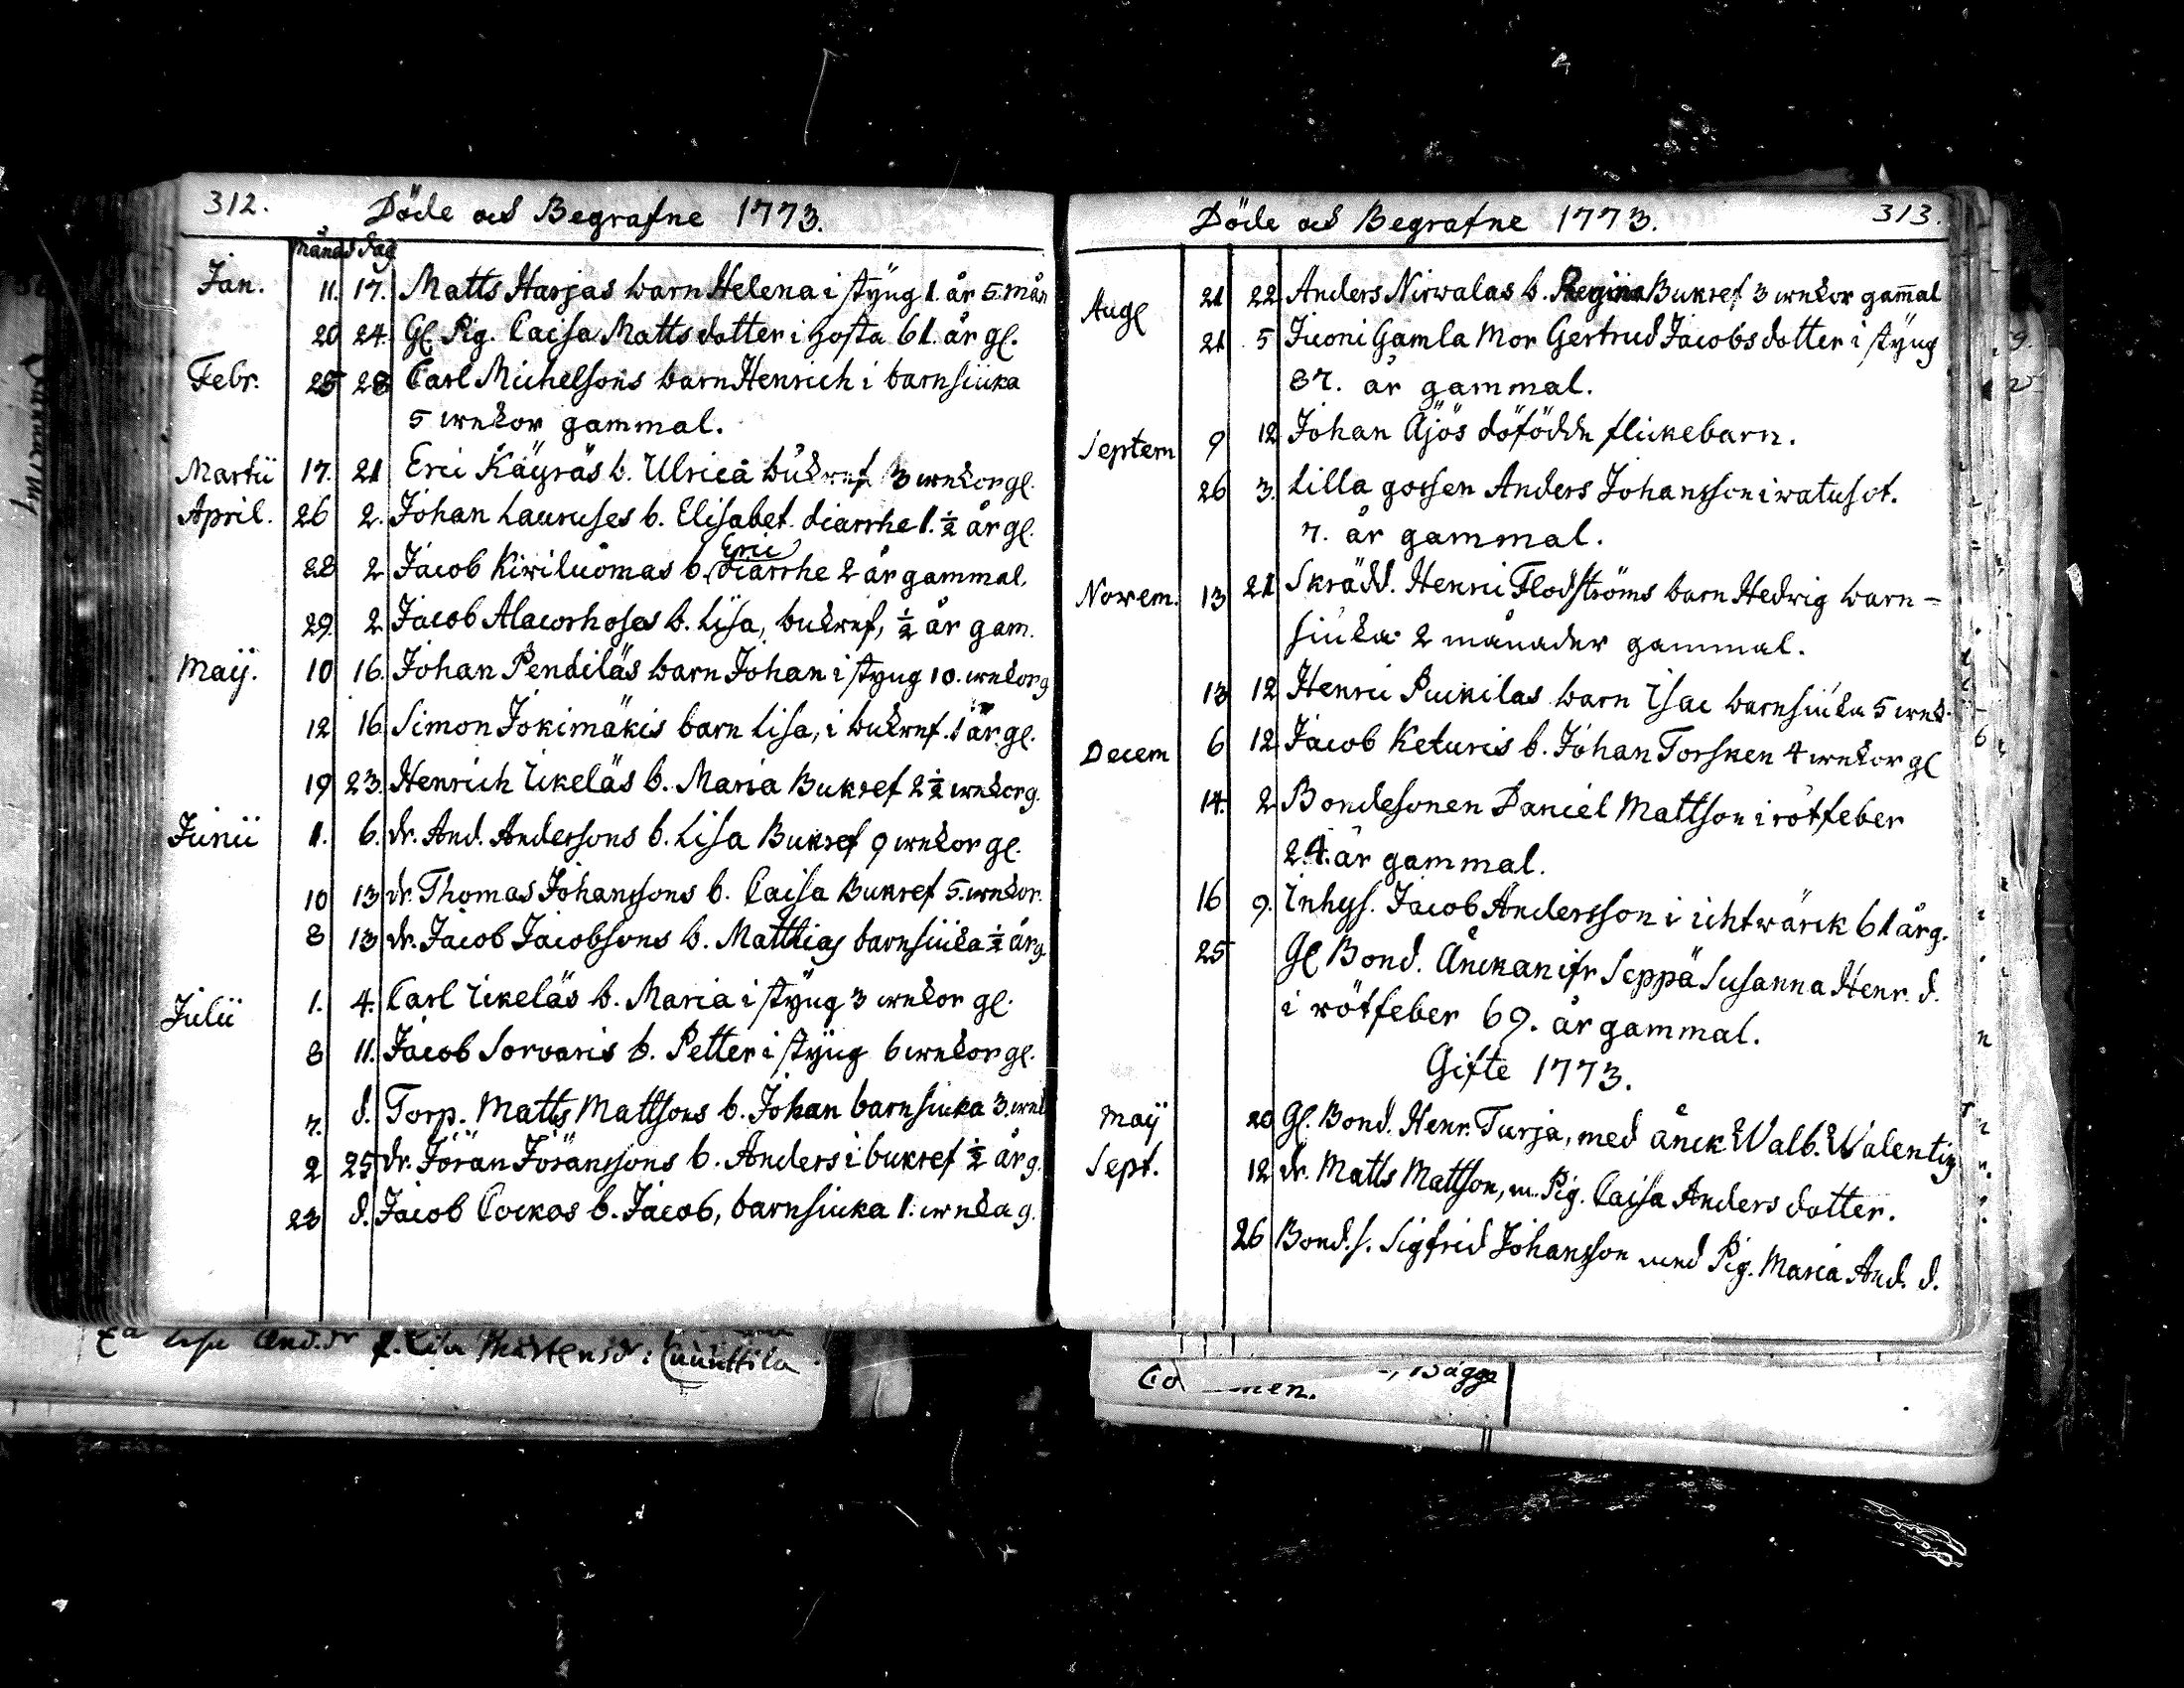 312.
Döde och Begrafne 1773.
månad dag
Jan. 11. 17. Matts Harjas barn Helena i styng 1. år 5. mån
20 24. Gl. Pig. Caisa Matts dotter i hosta 61. år gl.
Febr. 25 28 Carl Michelsons barn Henrich i barnsiuka
5 wekor gammal.
Martii 17. 21 Eric Käyräs b. Ulrica bukref 3 wekor gl.
April. 26 2. Johan Lauruses b. Elisabet. diarrhe 1. ½ år gl.
Eric
28 2 Jacob Kiviluomas b. diarrhe 2 år gammal.
29. 2 Jacob Alacorhosas b. Lisa, bukref, ½ år gam.
Maij. 10 16. Johan Pendiläs barn Johan i styng 10. wekor g
12 16 Simon Jokimäkis barn Lisa, i bukref. 1 år gl.
19 23. Henrich Ikeläs b. Maria Bukref 2 ½ wekor g.
Junii 1. 6. dr. And. Anderssons b. Lisa Bukref 9 wekor gl.
10 13 dr. Thomas Johanssons b. Caisa Bukref 5. wekor.
8 13 dr. Jacob Jacobsons b. Matthias barnsiuka ½ år g.
Julii 1. 4. Carl Ikeläs b. Maria i styng 3 wekor gl.
8 11. Jacob Sorvaris b. Petter i styng 6 wekor gl.
7. d. Torp. Matts Mattsons b. Johan barnsiuka 3. wek
2 25 dr. Jöran Jöranssons b. Anders i bukref ½ år g.
23 d. Jacob Cockos b. Jacob, barnsiuka 1. weka g.
And. dr
Döde och Begrafne 1773.
313.
Aug 21 22 Anders Nirwalas b. Regina Bukref 3 wekor gammal
21 5 Juoni Gamla Mor Gertrud Jacobs dotter i styng
87. år gammal.
Septem 9 12 Johan Äjös döfödde flickebarn.
26 3. Lilla gossen Anders Johansson i watusot.
7. år gammal.
Novem. 13 21 Skrädd. Henric Flodströms barn Hedvig barn-
siuka 2 månader gammal.
13 12 Henric Puckilas barn Isac barnsiuka 5 wek.
Decem 6 12 Jacob Keturis b. Johan Torsken 4 wekor gl
14. 2 Bondesonen Daniel Mattson i rötfeber
24. år gammal.
16 9. Inhys. Jacob Andersson i ichtwärck 61 år g.
25 Gl Bond. Änckan ifr Seppä Susanna Henr. d.
i rötfeber 69. år gammal.
Gifte 1773.
Maij 20 Gl. Bond. Henr. Turja, med änck. Walb. Walentin
Sept. 12 dr. Matts Mattson, m. Pig. Caisa Anders dotter.
26 Bond. s. Sigfrid Johansson med Pig. Maria And. d.
Bägge